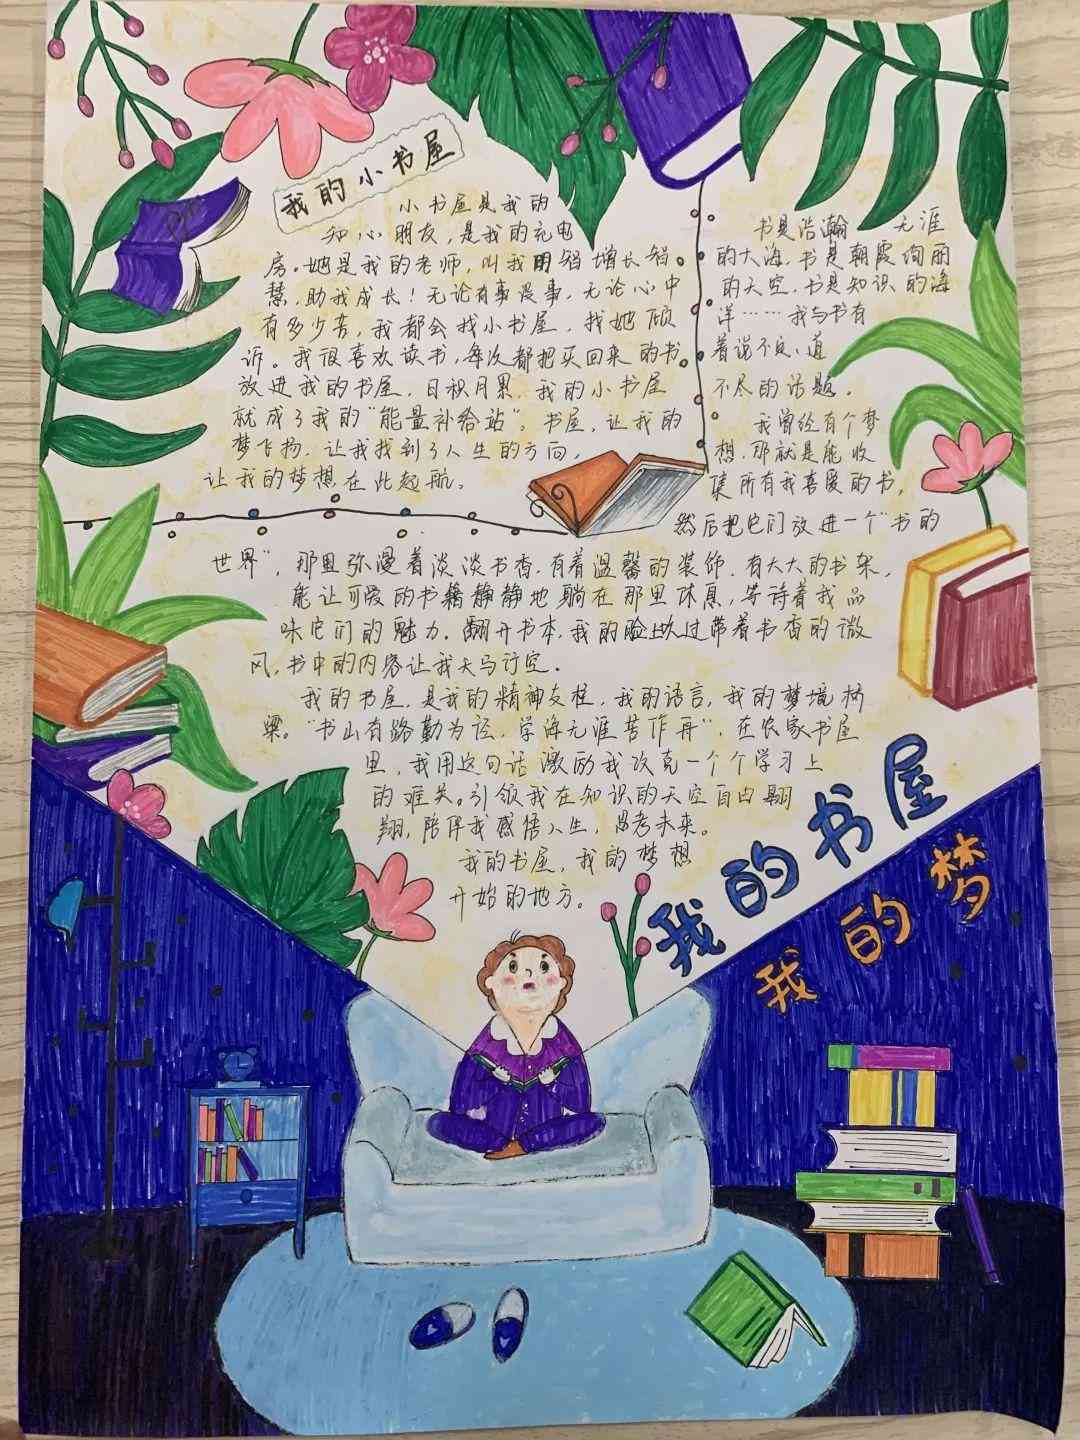 我的小书屋
小书屋是我的
知心朋友，是我的充电
房。她是我的老师，叫我用知增长智
慧，助我成长！无论有事没事，无论心中
有多少苦，我都会找小书屋，找她倾
诉。我很喜欢读书，每次都把买回来的书
放进我的书屋，日积月累，我的小书屋
就成了我的"能量补给站"。书屋，让我的
梦飞扬，让我找到了人生的方向，
让我的梦想在此起航。
书是浩瀚 无涯
的大海，书是朝霞绚丽
的天空，书是知识的海
洋……我与书有
着说不完、道
不尽的话题。
我曾经有个梦
想，那就是能收
集所有我喜爱的书，
然后把它们放进一个"书的
世界"，那里弥漫着淡淡书香，有着温馨的装饰，有大大的书架，
能让可爱的书籍静静地躺在那里休息，等待着我品
味它们的魅力。翻开书本，我的脸上吹过带着书香的微
风，书中的内容让我天马行空。
我的书屋，是我的精神支柱，我的语言，我的梦境桥
梁。"书山有路勤为径，学海无涯苦作舟"，在农家书屋
里，我用这句话激励我攻克一个个学习上
的难关。引领我在知识的天空自由翱
翔，陪伴我感悟人生，思考未来。
我的书屋，我的梦想
开始的地方。
我的书屋
我的梦